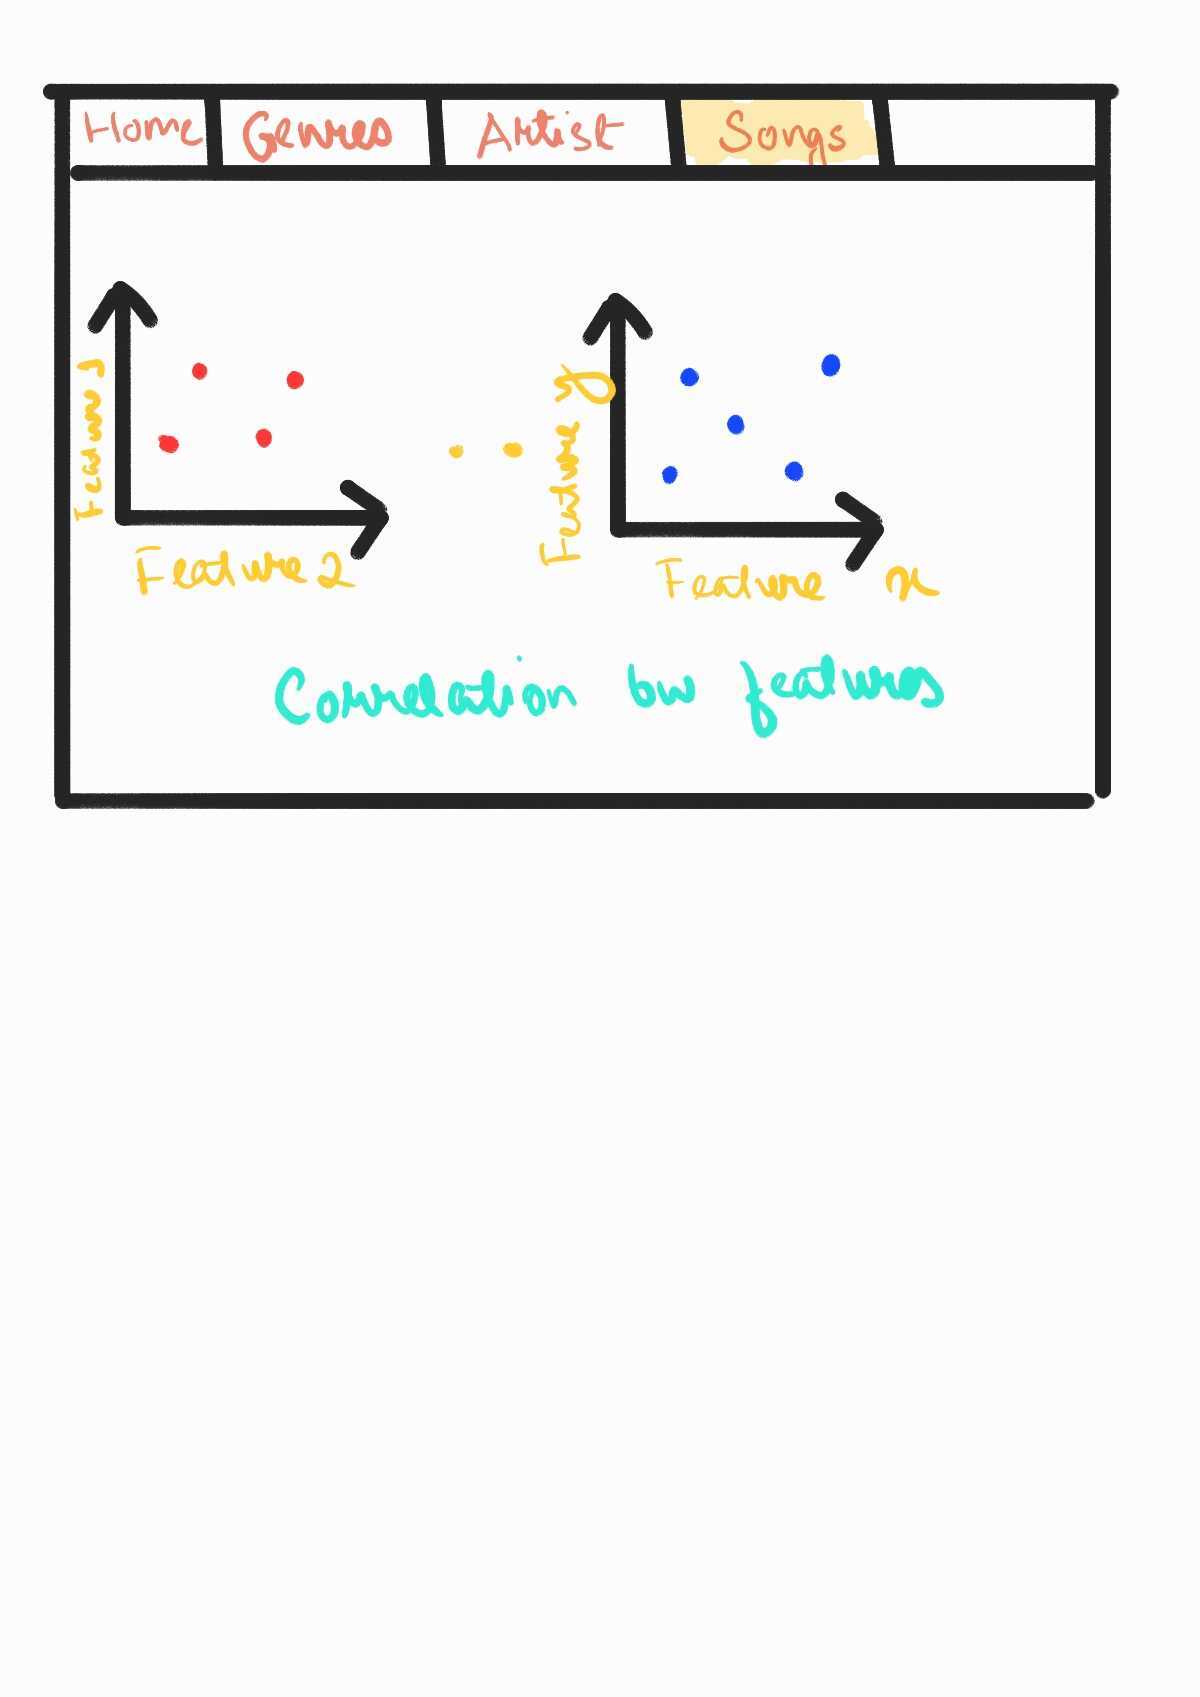 Home Genres Artist Songs
Feature 1
Feature 2
Feature y
Feature x
Correlation bw features